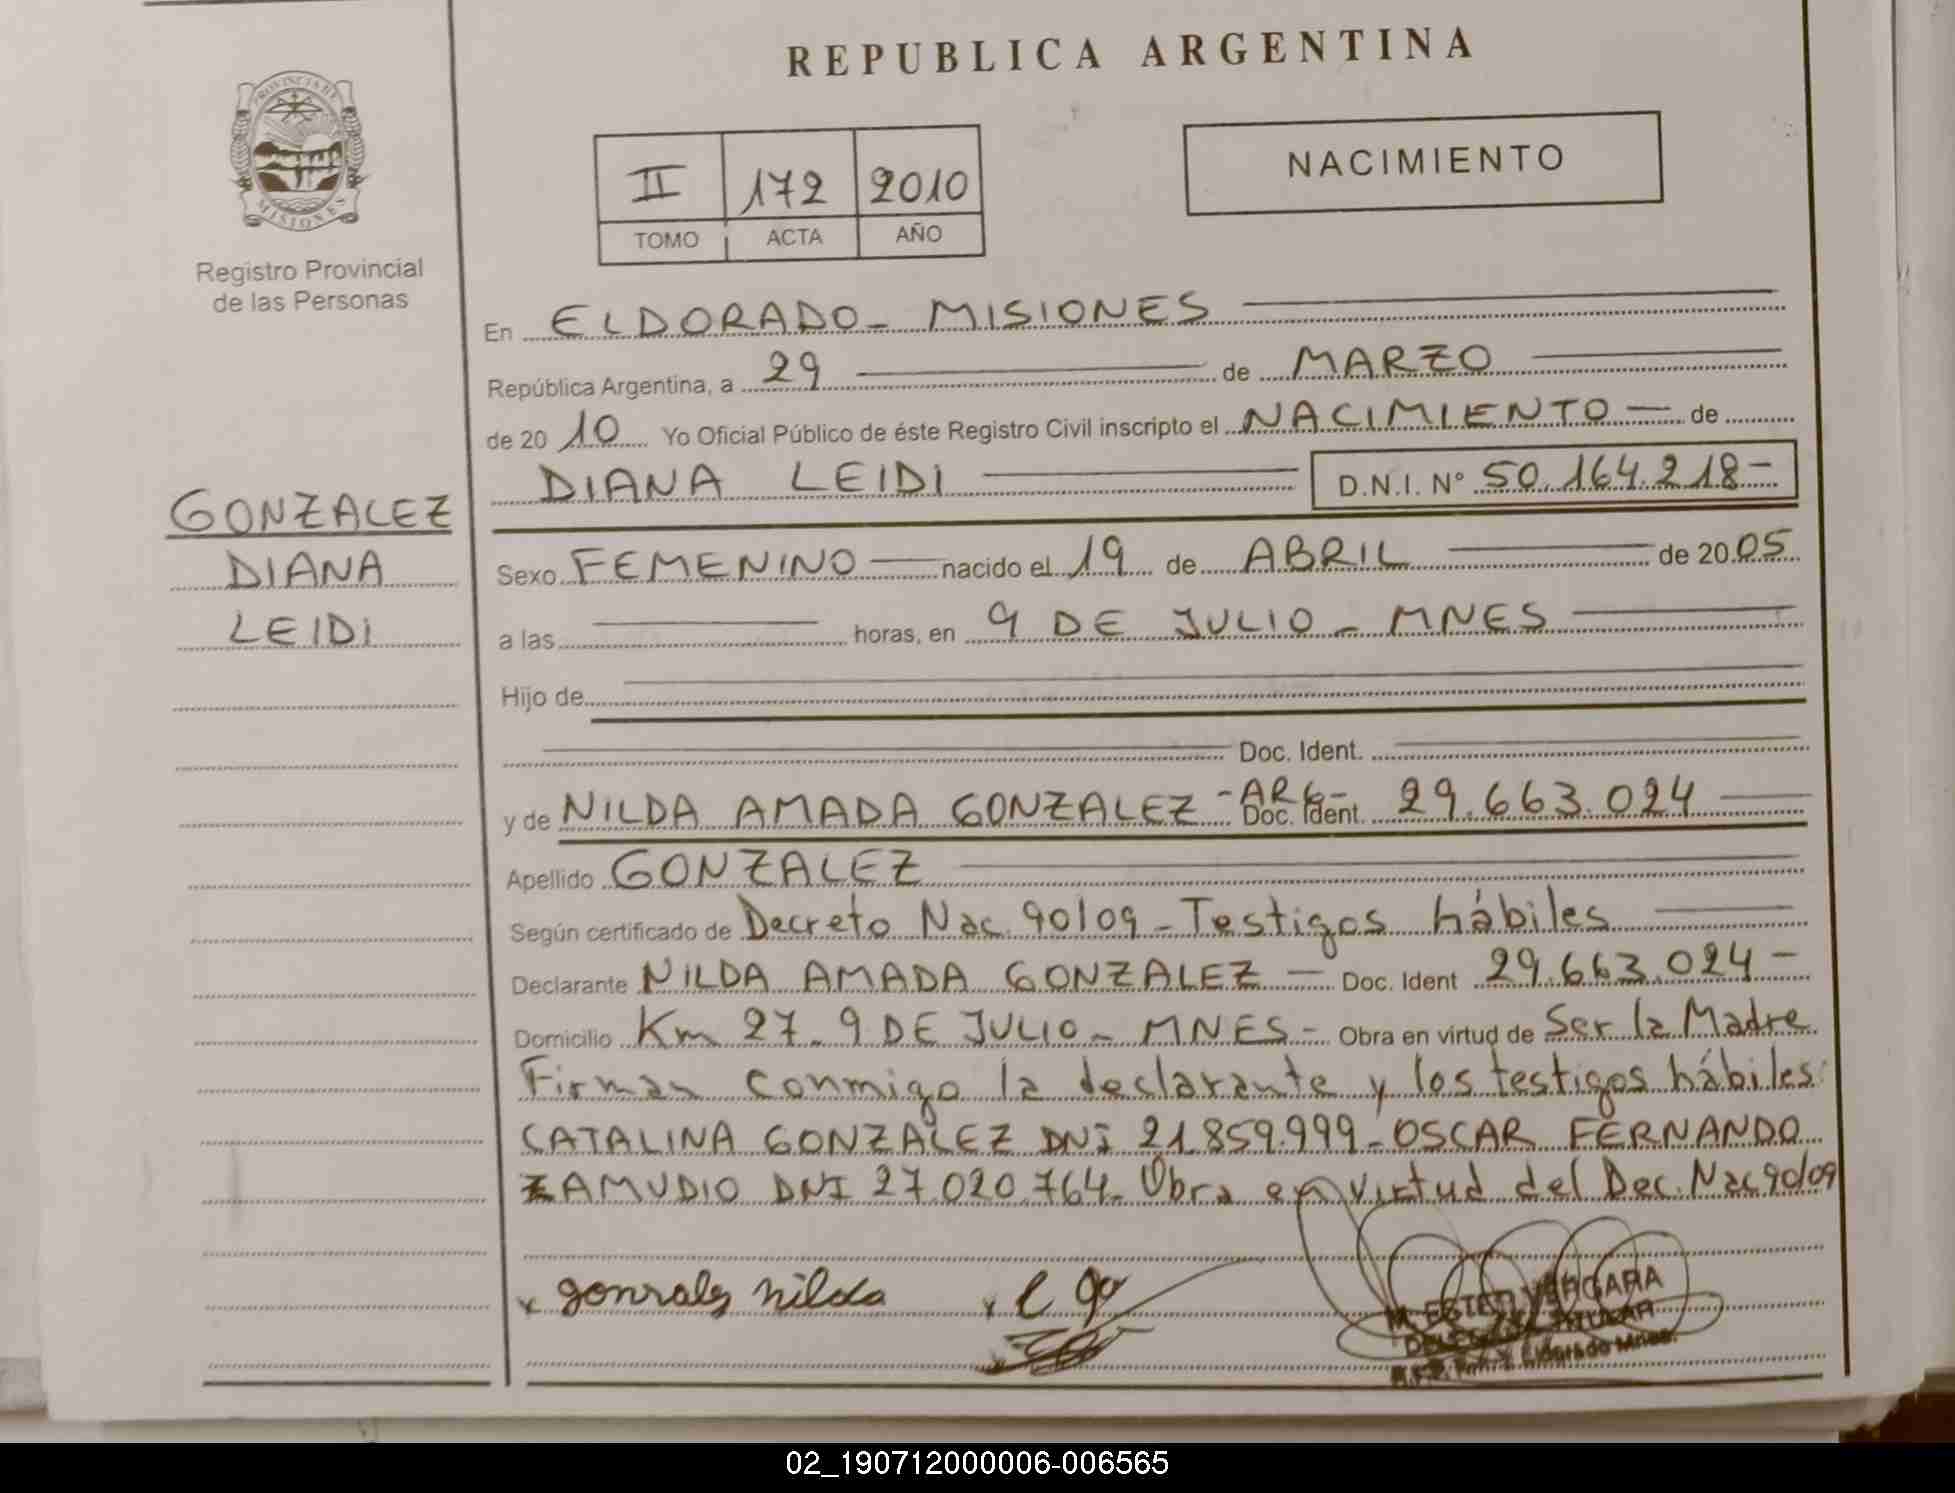 REPUBLICA ARGENTINA
PROVINCIA DE
MISIONES
Registro Provincial
de las Personas
II 172 2010
TOMO ACTA AÑO
NACIMIENTO
En ELDORADO - MISIONES
República Argentina, a 29 de MARZO
de 20 10 Yo Oficial Público de éste Registro Civil inscripto el NACIMIENTO - de
DIANA LEIDI D.N.I. N° 50.164.218-
GONZALEZ
DIANA
LEIDI
Sexo FEMENINO nacido el 19 de ABRIL de 20 05
a las horas, en 9 DE JULIO - MNES
Hijo de
Doc. Ident.
y de NILDA AMADA GONZALEZ - ARG - Doc. Ident. 29.663.024
Apellido GONZALEZ
Según certificado de Decreto Nac. 90/09 - Testigos hábiles
Declarante NILDA AMADA GONZALEZ - Doc. Ident 29.663.024 -
Domicilio Km 27 - 9 DE JULIO - MNES - Obra en virtud de Ser la Madre
Firman conmigo la declarante y los testigos hábiles:
CATALINA GONZALEZ DNI 21.859.999 - OSCAR FERNANDO
ZAMUDIO DNI 27.020.764. Obra en virtud del Dec. Nac 90/09
x gonzalez nilda x C go
M. ESTER VERGARA
TITULAR
Eldorado Mnes.
02_190712000006-006565